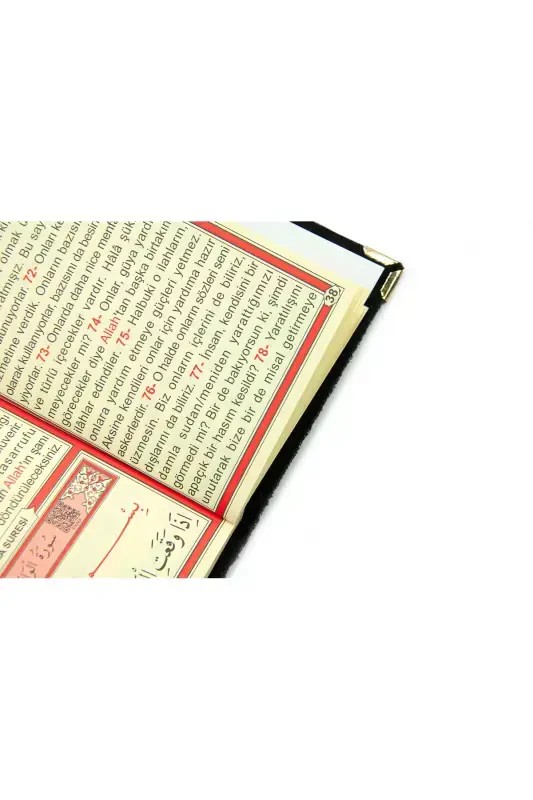 olmak
atmışız. Bu say
nunuyorlar. 72- Onları ke
zmetine verdik. Onların bazısın
olarak kullanıyorlar, bazısını da besin
yiyorlar. 73- Onlarda daha nice menfa
ve türlü içecekler vardır. Hâlâ şük
meyecekler mi? 74- Onlar, güya yardı
görecekler diye Allah'tan başka birtakım
ilâhlar edindiler. 75- Halbuki o ilahların,
onlara yardım etmeye güçleri yetmez.
Aksine kendileri onlar için yardıma hazır
askerlerdir. 76- O halde onların sözleri seni
üzmesin. Biz onların içlerini de biliriz,
dışlarını da biliriz. 77- İnsan, kendisini bir
damla sudan/meniden yarattığımızı
görmedi mi? Bir de bakıyorsun ki, şimdi
apaçık bir hasım kesildi? 78- Yaratılışını
unutarak bize bir de misal getirmeye
38
tasarrufu
an Allah'ın şanı
döndürüleceksiniz.
A SURESİ
سُورَةُ الْوَا
بِسْمِ
اِذَا وَقَعَتِ